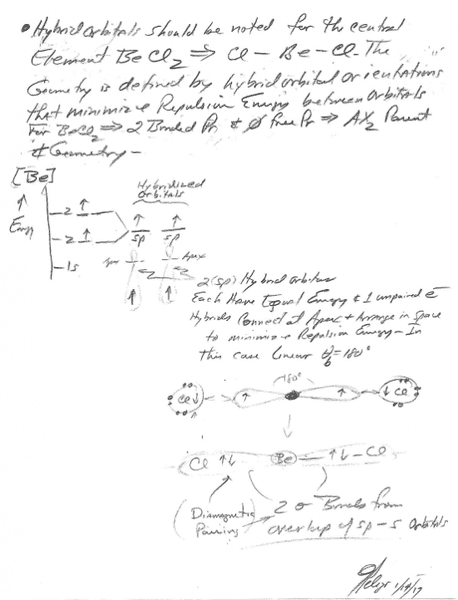 • Hybrid Orbitals should be noted for the central
Element BeCl2 ⇒ Cl – Be – Cl. The
Geometry is defined by hybrid orbital orientations
that minimize Repulsion Energy between orbitals
For BeCl2 ⇒ 2 Bonded Pr & Ø Free Pr ⇒ AX2 Parent
& Geometry –
[Be]
Hybridized
Orbitals
↑
Energy
2 ↑
2 ↑
1s
↑ ↑
sp sp
Apex
↑ ↑
2(sp) Hybrid orbitals
Each Have Equal Energy & 1 unpaired e-
Hybrids Connect at Apex & Arrange in Space
to minimize Repulsion Energy – In
this case Linear θb = 180°
180°
Cl ↓ ↑ ↑ ↓ Cl
Cl ↑↓ Be – ↑↓ – Cl
(Diamagnetic
Pairing)
2 σ Bonds from
overlap of sp – s Orbitals
1/19/17